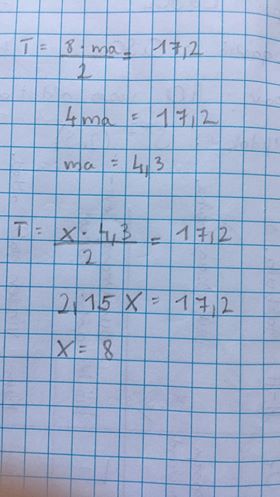 T = 8 · ma / 2 = 17,2
4ma = 17,2
ma = 4,3
T = x · 4,3 / 2 = 17,2
2,15 x = 17,2
x = 8